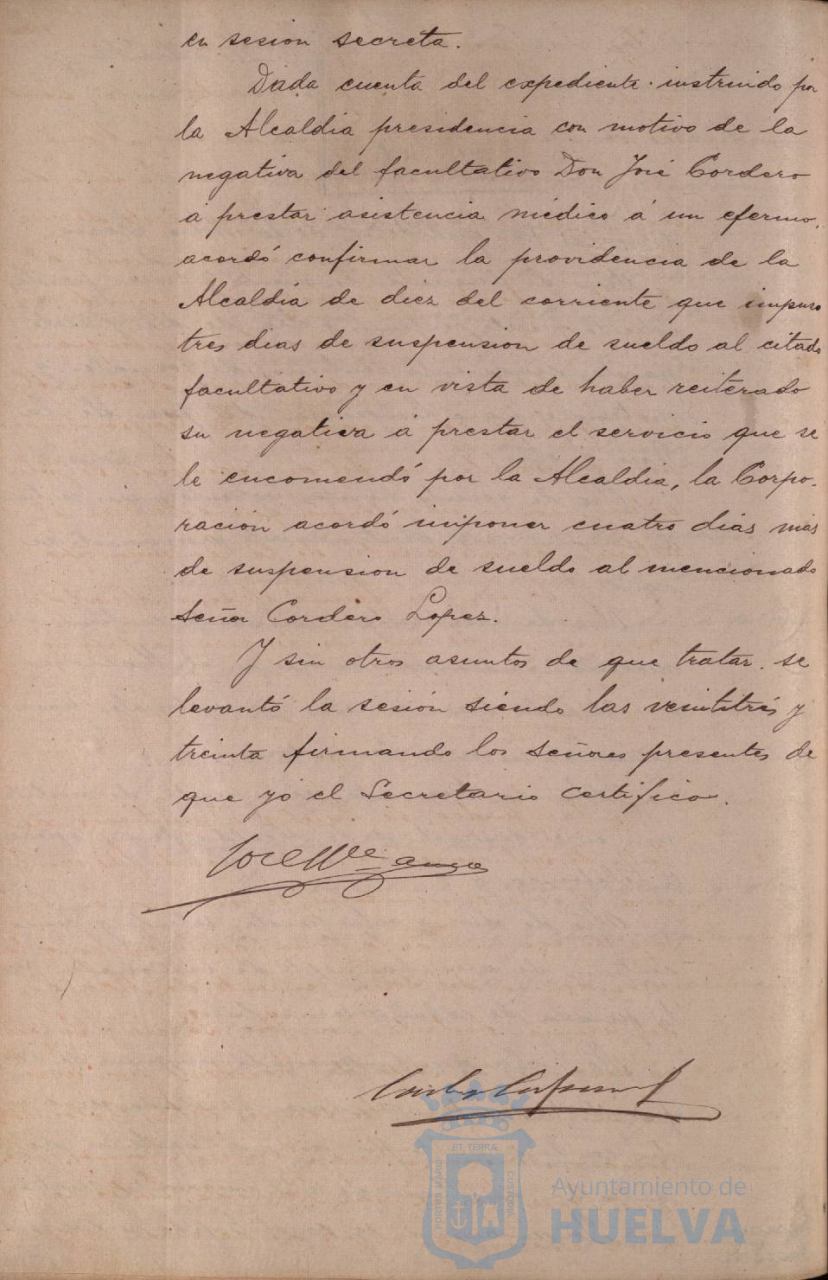 en sesion secreta.
Dada cuenta del expediente instruido por
la Alcaldia presidencia con motivo de la
negativa del facultativo Don José Cordero
á prestar asistencia médico á un efermo,
acordó confirmar la providencia de la
Alcaldía de diez del corriente que impuso
tres dias de suspension de sueldo al citado
facultativo y en vista de haber reiterado
su negativa á prestar el servicio que se
le encomendó por la Alcaldia, la Corpo-
ración acordó imponer cuatro dias más
de suspension de sueldo al mencionado
Señor Cordero Lopez.
Y sin otros asuntos de que tratar se
levantó la sesión siendo las veintitrés y
treinta firmando los señores presentes de
que yó el Secretario certifico.
ET TERRAE
PORTUS MARIS
CUSTODIA
Ayuntamiento de
HUELVA